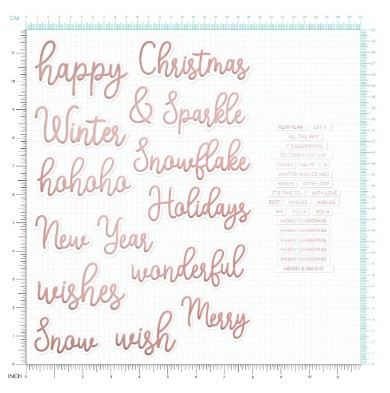 CM
happy Christmas
& Sparkle
Winter
Snowflake
hohoho
Holidays
New Year
wonderful
wishes
Merry
Snow wish
NEW YEAR LET IT
ALL THE WAY
WINTER WISHES AND
WITH LOVE
IT'S TIME TO WITH LOVE
BEST WISHES WISHES
MERRY CHRISTMAS
MERRY CHRISTMAS
MERRY CHRISTMAS
MERRY CHRISTMAS
MERRY CHRISTMAS
MERRY & BRIGHT
INCH